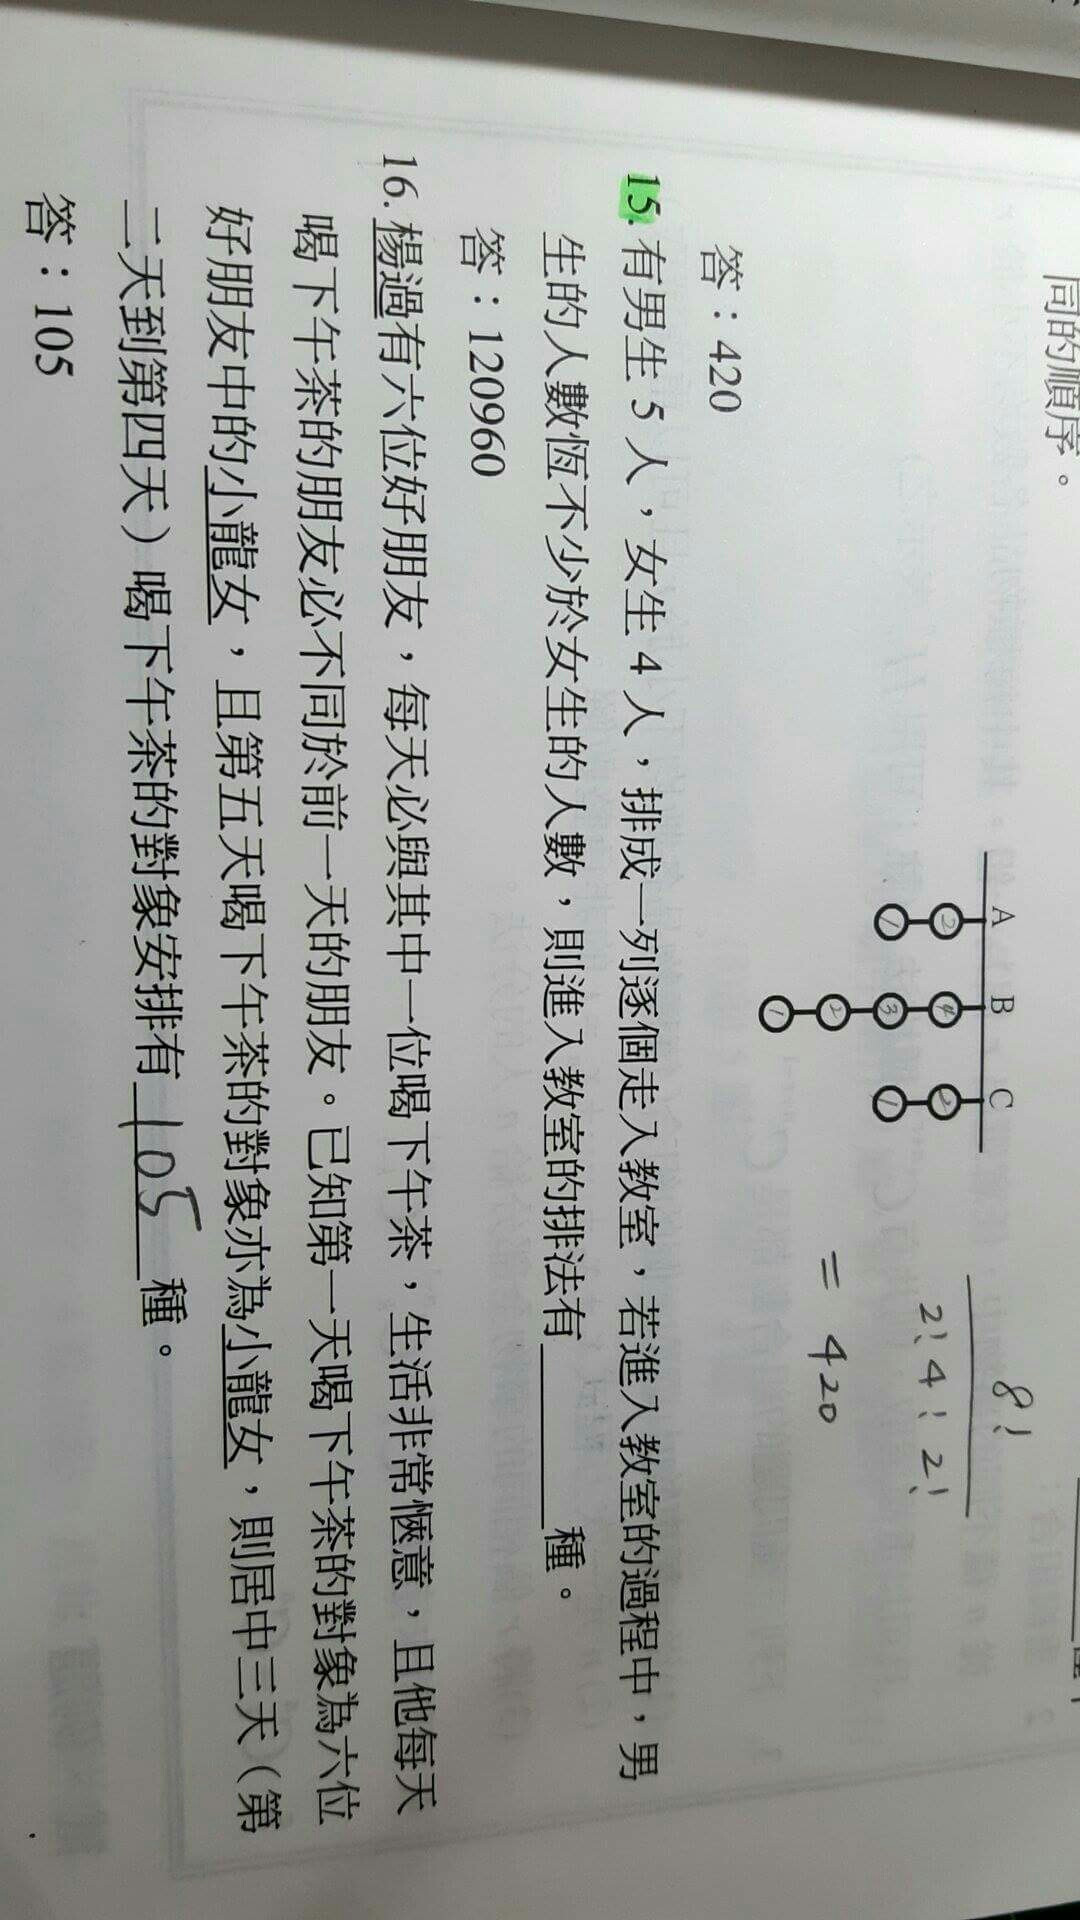 同的順序。
A B C
② ④ ②
① ③ ①
②
①
8!
2! 4! 2!
= 420
答：420
15. 有男生 5 人，女生 4 人，排成一列逐個走入教室，若進入教室的過程中，男
生的人數恆不少於女生的人數，則進入教室的排法有　　　種。
答：120960
16. 楊過有六位好朋友，每天必與其中一位喝下午茶，生活非常愜意，且他每天
喝下午茶的朋友必不同於前一天的朋友。已知第一天喝下午茶的對象為六位
好朋友中的小龍女，且第五天喝下午茶的對象亦為小龍女，則居中三天（第
二天到第四天）喝下午茶的對象安排有 105 種。
答：105